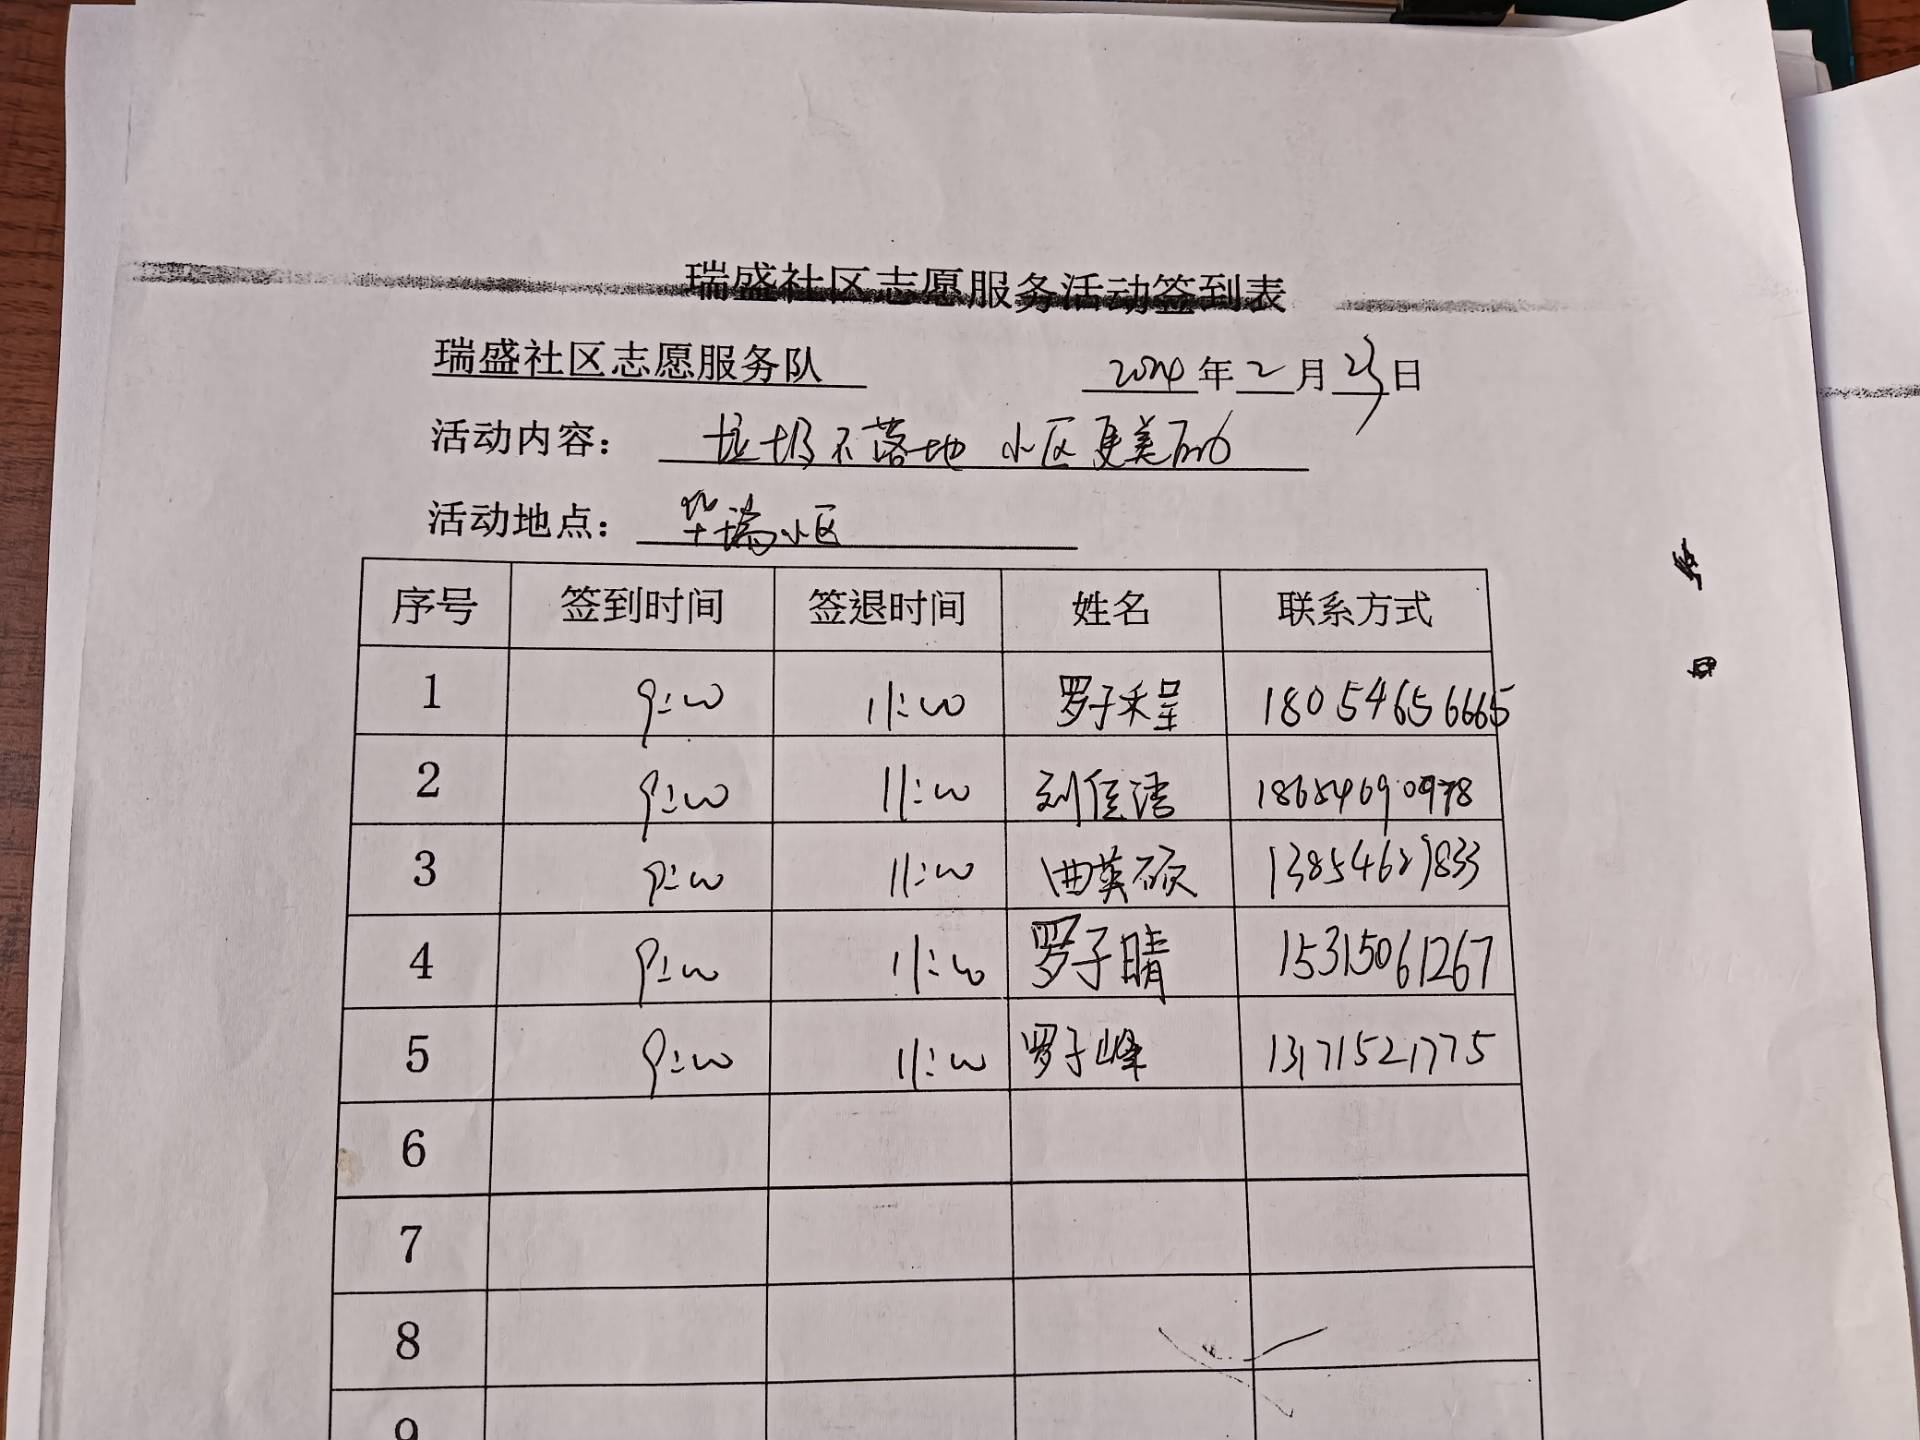 瑞盛社区志愿服务活动签到表
瑞盛社区志愿服务队 2024年2月23日
活动内容: 垃圾不落地 小区更美丽
活动地点: 华瑞小区
序号 签到时间 签退时间 姓名 联系方式
1 9:00 11:00 罗子程 18054656665
2 9:00 11:00 刘佳洁 18654690978
3 9:00 11:00 曲英硕 13854629833
4 9:00 11:00 罗子晴 15315061267
5 9:00 11:00 罗子峰 13171521775
6
7
8
9